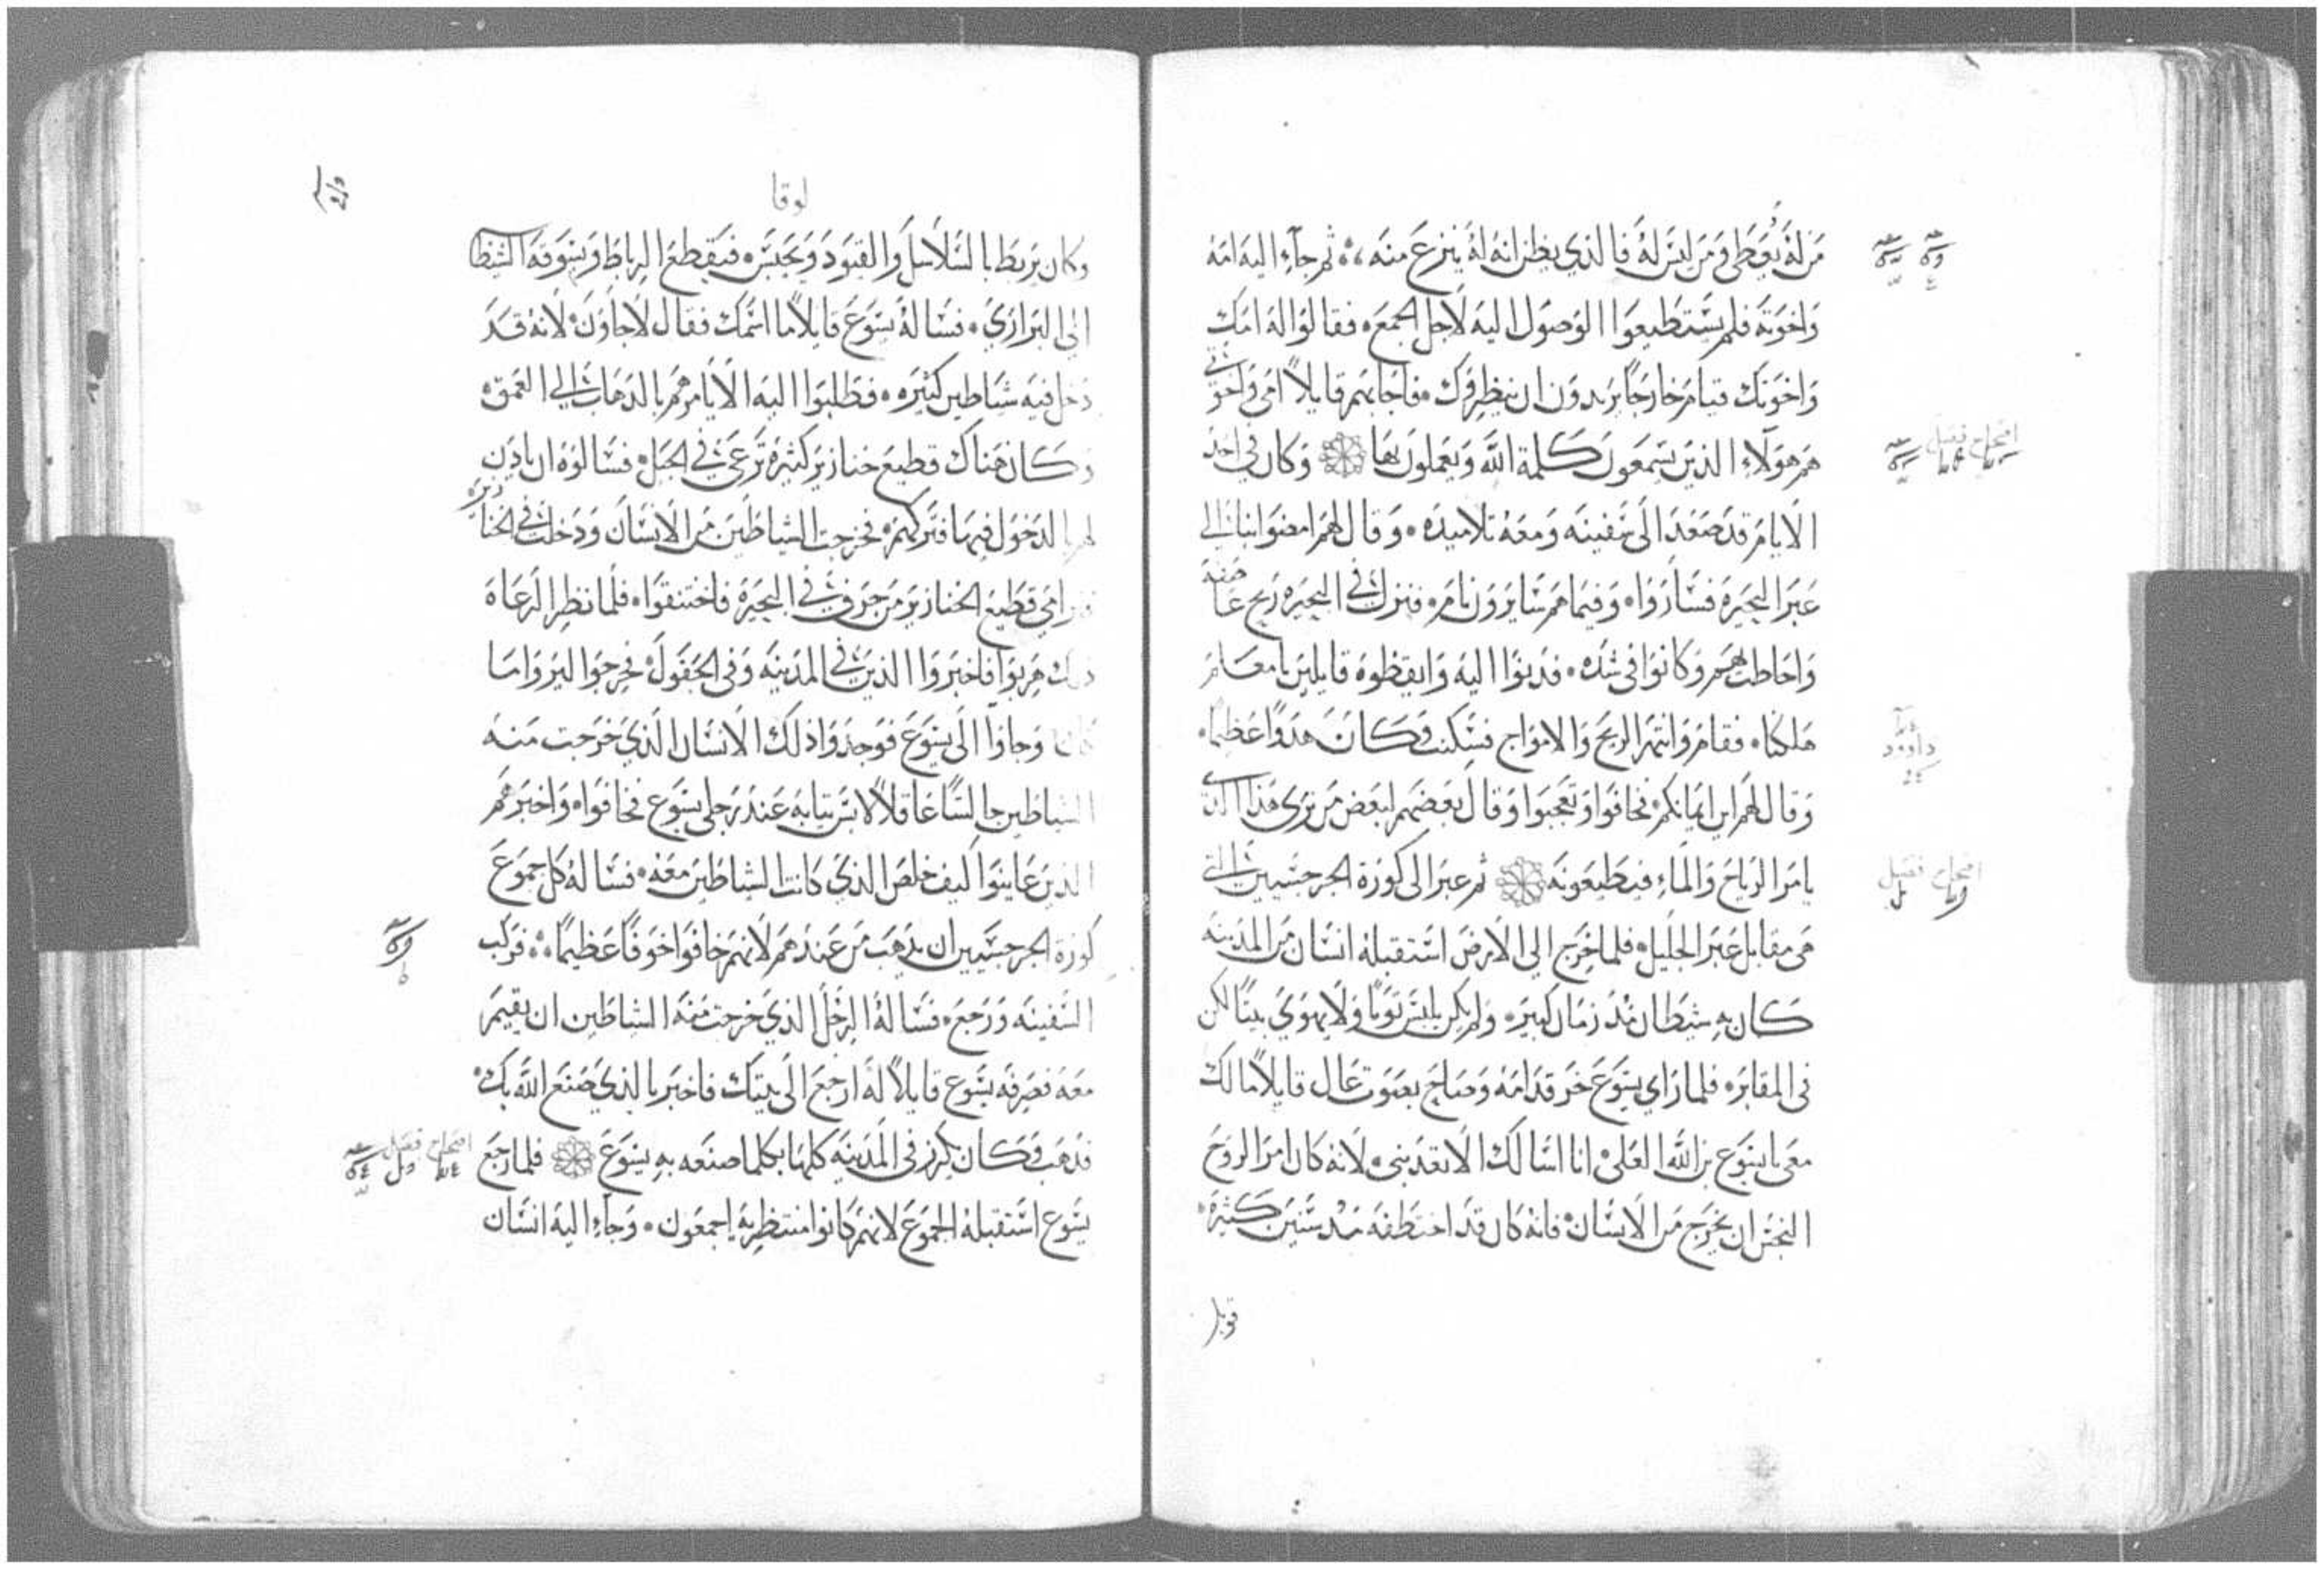 من له يُعطى ومن ليس له فالذي يظن انه له ينزع منه ؞ ثم جآء اليه امه
واخوته فلم يستطيعوا الوصول اليه لاجل الجمع ؞ فقالوا له امك
واخوتك قيام خارجًا يريدون ان ينظروك ؞ فاجابهم قايلاً امي واخوتي
هم هولآء الذين يسمعون كلمة الله ويعملون بها وكان في احد
الايام قد صعد الى سفينه ومعه تلاميذه ؞ وقال لهم امضوا بنا الى
عبر البحيره فساروا ؞ وفيما هم سايرون نام ؞ فنزل في البحيره ريح عاصفه
واحاطت بهم وكانوا في شده ؞ فدنوا اليه وايقظوه قايلين يا معلم
هلكنا ؞ فقام وانتهر الريح والامواج فسكنت وكان هدوًا عظيمًا ؞
وقال لهم اين ايمانكم ؞ فخافوا وتعجبوا وقال بعضهم لبعض من ترى هذا الذي
يامر الرياح والمآء فيطيعونه ثم عبر الى كورة الجرجسيين التي
هي مقابل عبر الجليل ؞ فلما خرج الي الارض استقبله انسان من المدينه
كان به شيطان منذ زمان كبير ؞ ولم يكن يلبس ثوبًا ولا يهوي بيتًا لكن
في المقابر ؞ فلما راي يسوع خر قدامه وصاح بصوت عال قايلاً ما لك
معي يا يسوع بن الله العلي ؞ انا اسالك الا تعذبني ؞ لانه كان امر الروح
النجس ان يخرج من الانسان ؞ فانه كان قد اختطفه منذ سنين كثيرة ؞
قوبل
لوقا
وكان يربط بالسلاسل والقيود ويحبس ؞ فيقطع الرباط ويسوقه الشيطان
الي البراري ؞ فساله يسوع قايلاً ما اسمك فقال لاجاون ؞ لانه قد
دخل فيه شياطين كثيره ؞ فطلبوا اليه الا يامرهم بالذهاب الي العمق ؞
وكان هناك قطيع خنازير كثيرة ترعى في الجبل ؞ فسالوه ان ياذن
لهم بالدخول فيها فتركهم ؞ فخرجت الشياطين من الانسان ودخلت في الخنازير
فترامي قطيع الخنازير من جرف في البحيرة فاختنقوا ؞ فلما نظر الرعاه
ذلك هربوا فاخبروا الذين في المدينه وفى الحقول ؞ فخرجوا ليروا ما
كان وجاوا الى يسوع فوجدوا ذلك الانسان الذي خرجت منه
الشياطين جالسًا عاقلاً لابس ثيابه عند رجلي يسوع فخافوا ؞ واخبرهم
الذين عاينوا كيف خلص الذي كانت الشياطين معه ؞ فساله كل جموع
كورة الجرجسيين ان يذهب من عندهم لانهم خافوا خوفًا عظيمًا ؞ فركب
السفينه ورجع ؞ فساله الرجل الذي خرجت منه الشياطين ان يقيم
معه فصرفه يسوع قايلاً له ارجع الى بيتك فاخبر بالذي صنع الله بك ؞
فذهب وكان يكرز في المدينه كلها بكلما صنعه به يسوع فلما رجع
يسوع استقبله الجموع لانهم كانوا منتظريه اجمعون ؞ وجآء اليه انسان